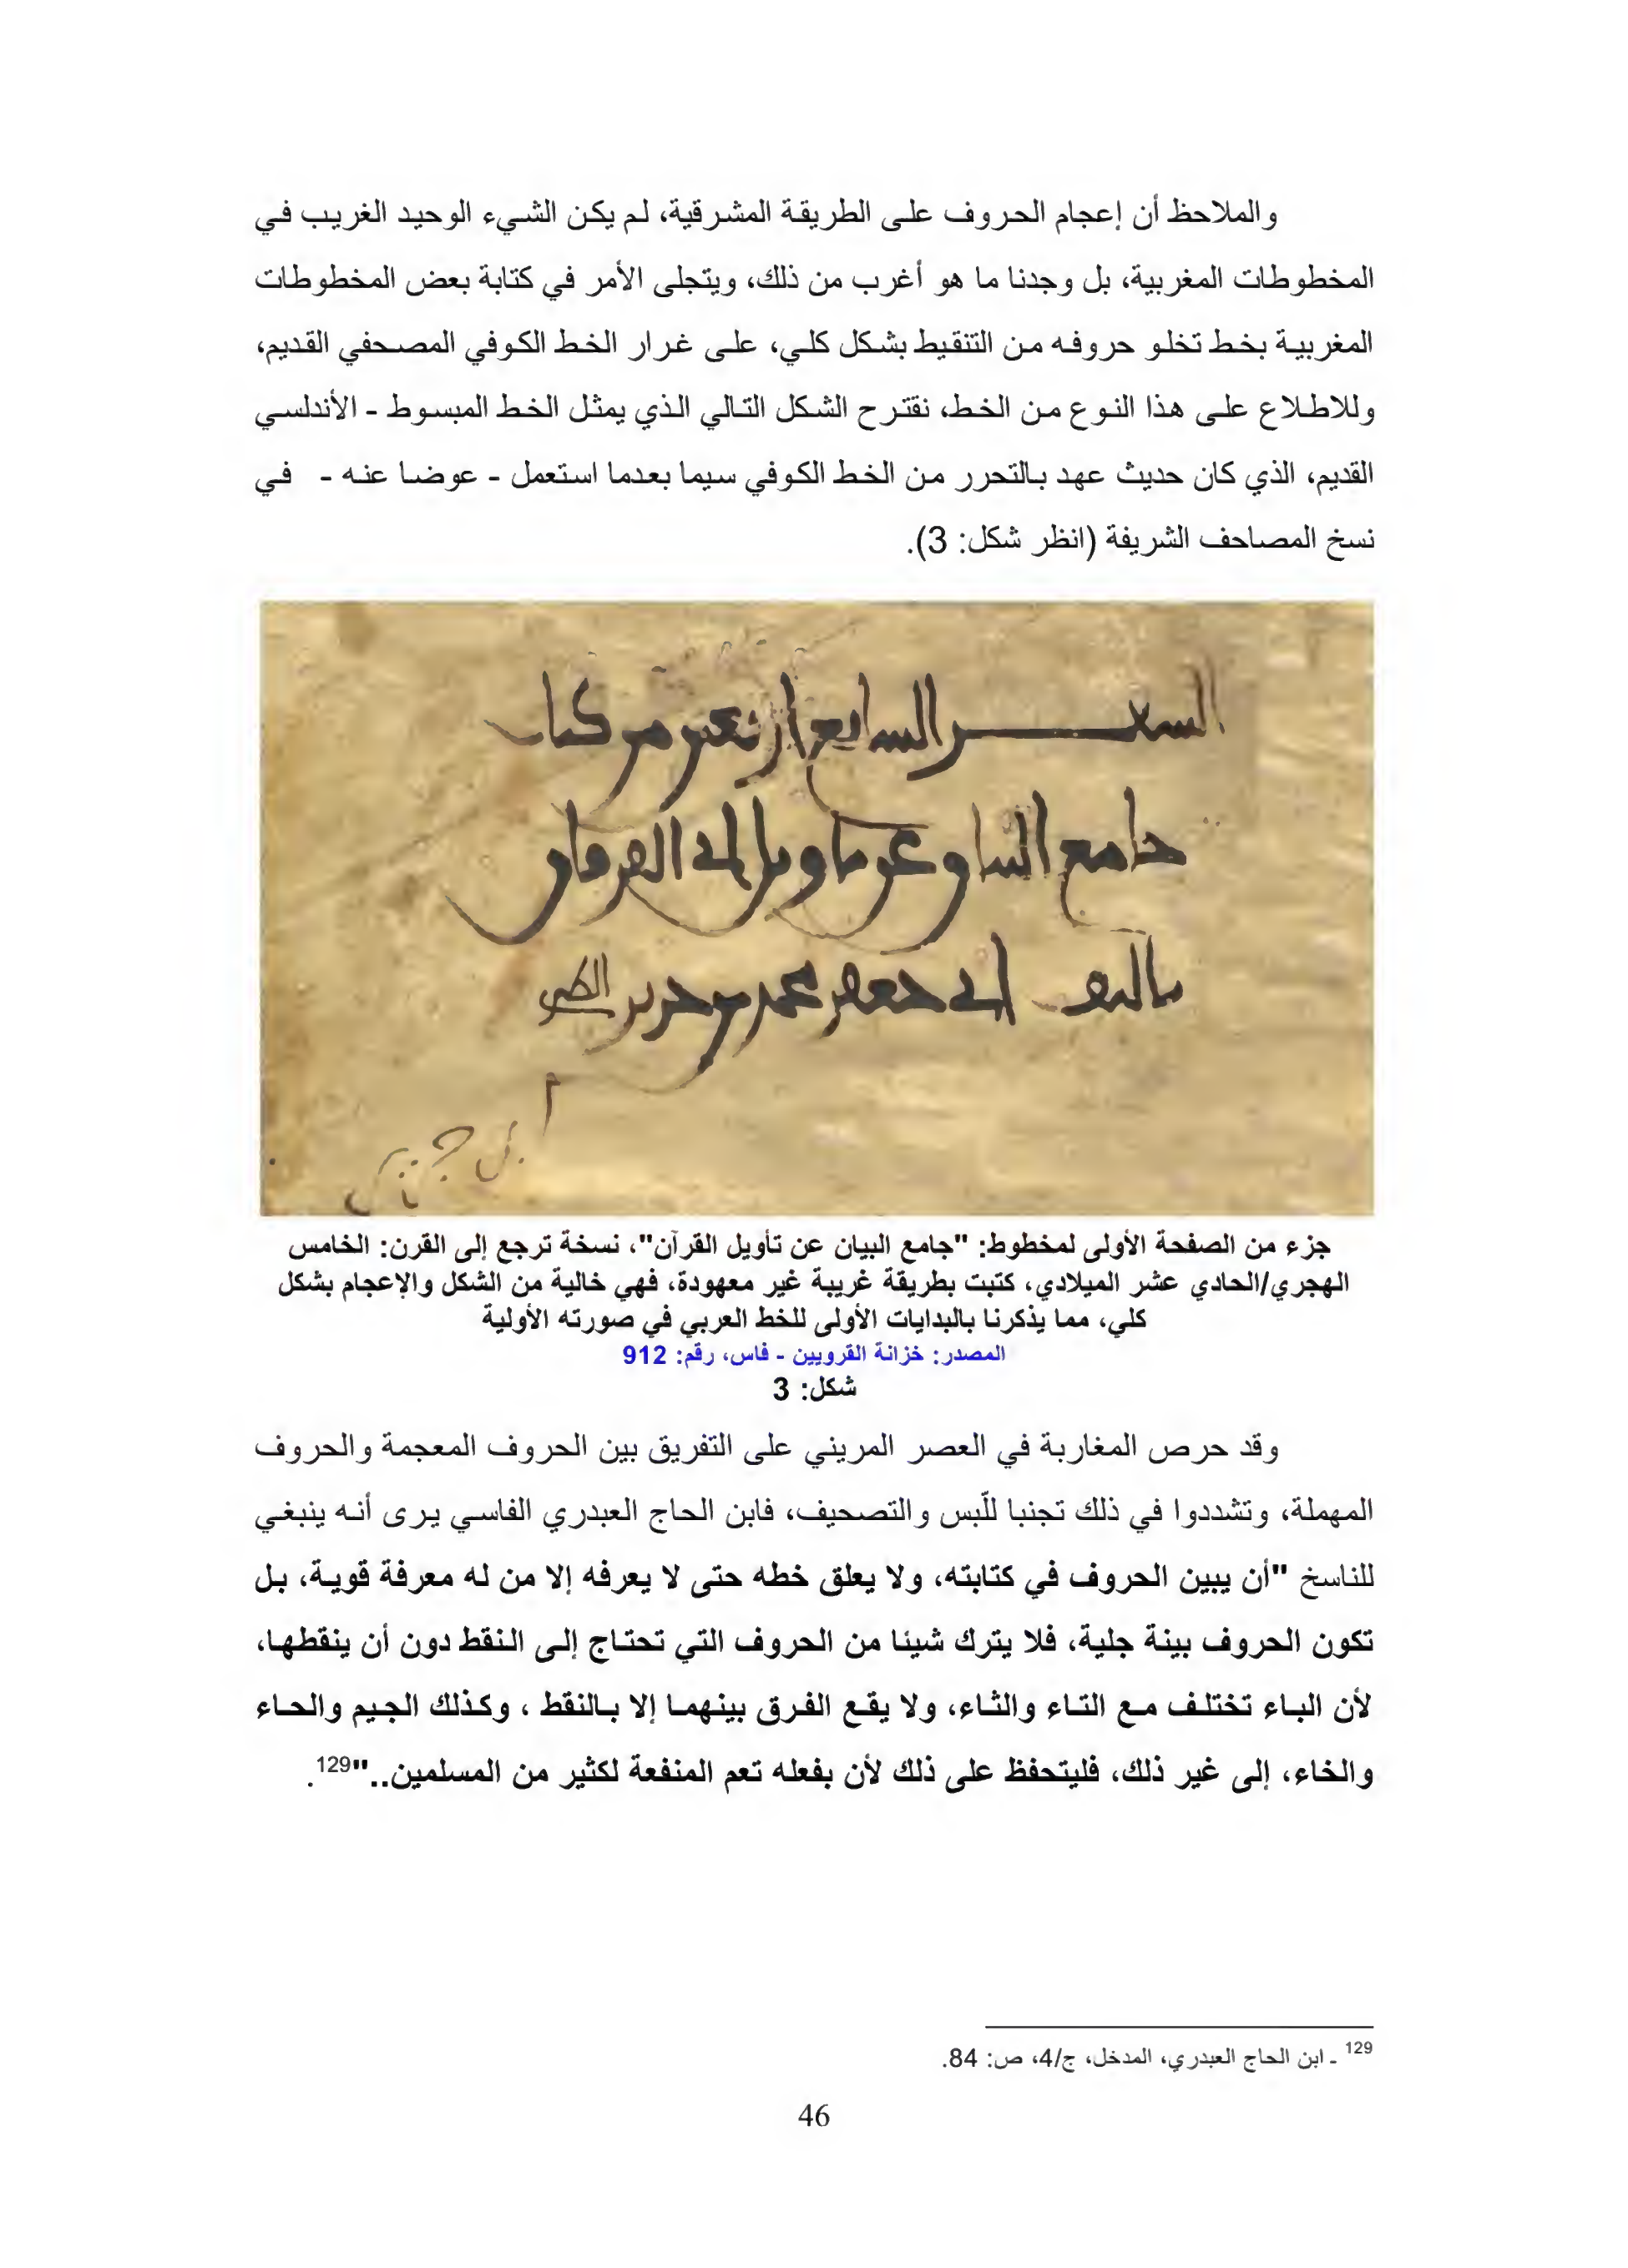 والملاحظ أن إعجام الحروف على الطريقة المشرقية، لم يكن الشيء الوحيد الغريب في
المخطوطات المغربية، بل وجدنا ما هو أغرب من ذلك، ويتجلى الأمر في كتابة بعض المخطوطات
المغربية بخط تخلو حروفه من التنقيط بشكل كلي، على غرار الخط الكوفي المصحفي القديم،
وللاطلاع على هذا النوع من الخط، نقترح الشكل التالي الذي يمثل الخط المبسوط - الأندلسي
القديم، الذي كان حديث عهد بالتحرر من الخط الكوفي سيما بعدما استعمل - عوضا عنه - في
نسخ المصاحف الشريفة (انظر شكل: 3).
السفر السابع أربعين من كتاب
جامع البيان عن تاويل اي القرءان
تاليف ابي جعفر محمد بن جرير الطبري
ابن جرير
جزء من الصفحة الأولى لمخطوط: "جامع البيان عن تأويل القرآن"، نسخة ترجع إلى القرن: الخامس
الهجري/الحادي عشر الميلادي، كتبت بطريقة غريبة غير معهودة، فهي خالية من الشكل والإعجام بشكل
كلي، مما يذكرنا بالبدايات الأولى للخط العربي في صورته الأولية
المصدر: خزانة القرويين - فاس، رقم: 912
شكل: 3
وقد حرص المغاربة في العصر المريني على التفريق بين الحروف المعجمة والحروف
المهملة، وتشددوا في ذلك تجنبا للّبس والتصحيف، فابن الحاج العبدري الفاسي يرى أنه ينبغي
للناسخ "أن يبين الحروف في كتابته، ولا يعلق خطه حتى لا يعرفه إلا من له معرفة قوية، بل
تكون الحروف بينة جلية، فلا يترك شيئا من الحروف التي تحتاج إلى النقط دون أن ينقطها،
لأن الباء تختلف مع التاء والثاء، ولا يقع الفرق بينهما إلا بالنقط ، وكذلك الجيم والحاء
والخاء، إلى غير ذلك، فليتحفظ على ذلك لأن بفعله تعم المنفعة لكثير من المسلمين.."129.
129 ـ ابن الحاج العبدري، المدخل، ج/4، ص: 84.
46